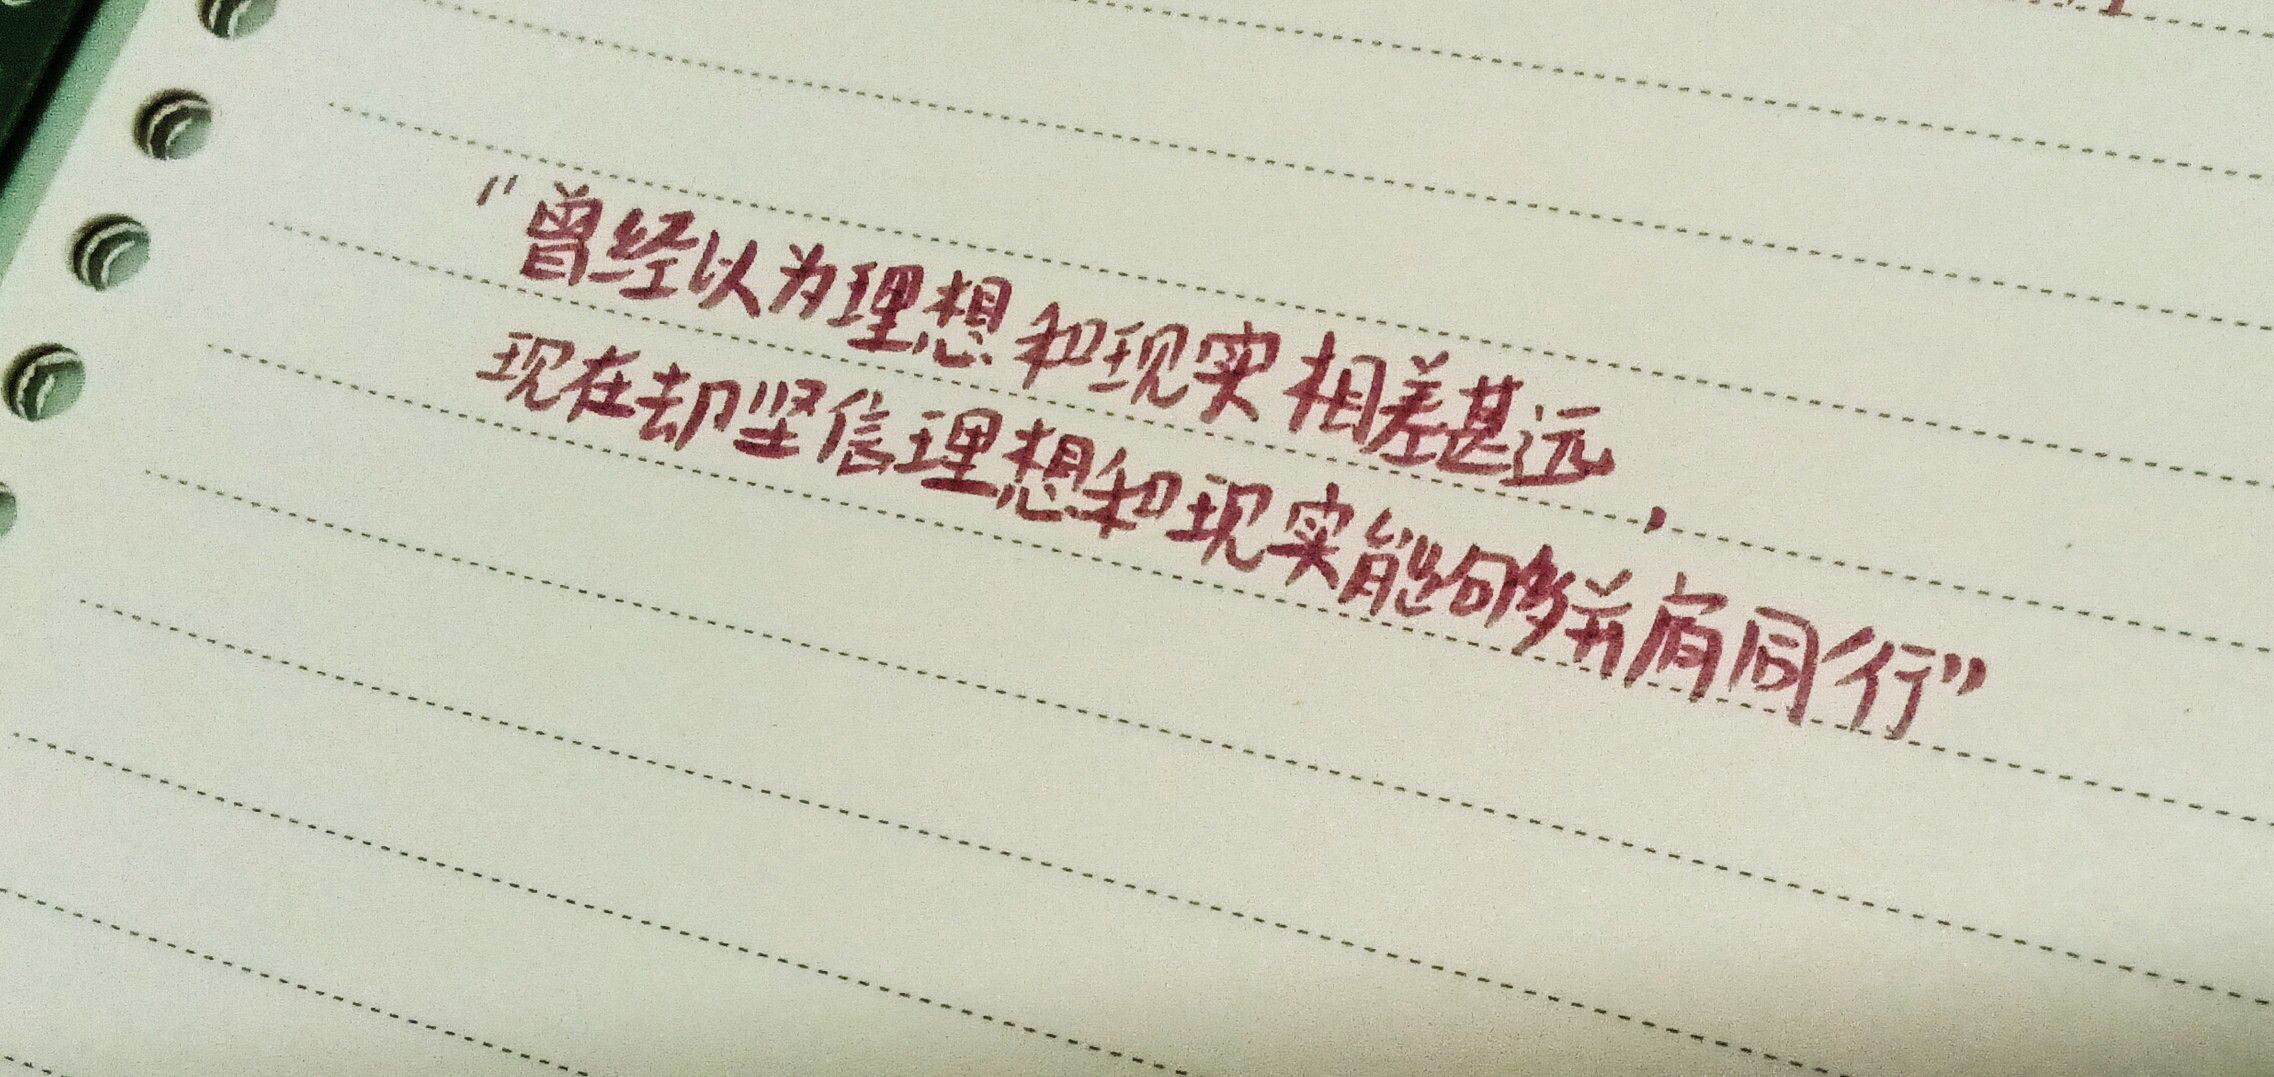 "曾经以为理想和现实相差甚远,
现在却坚信理想和现实能够并肩同行"